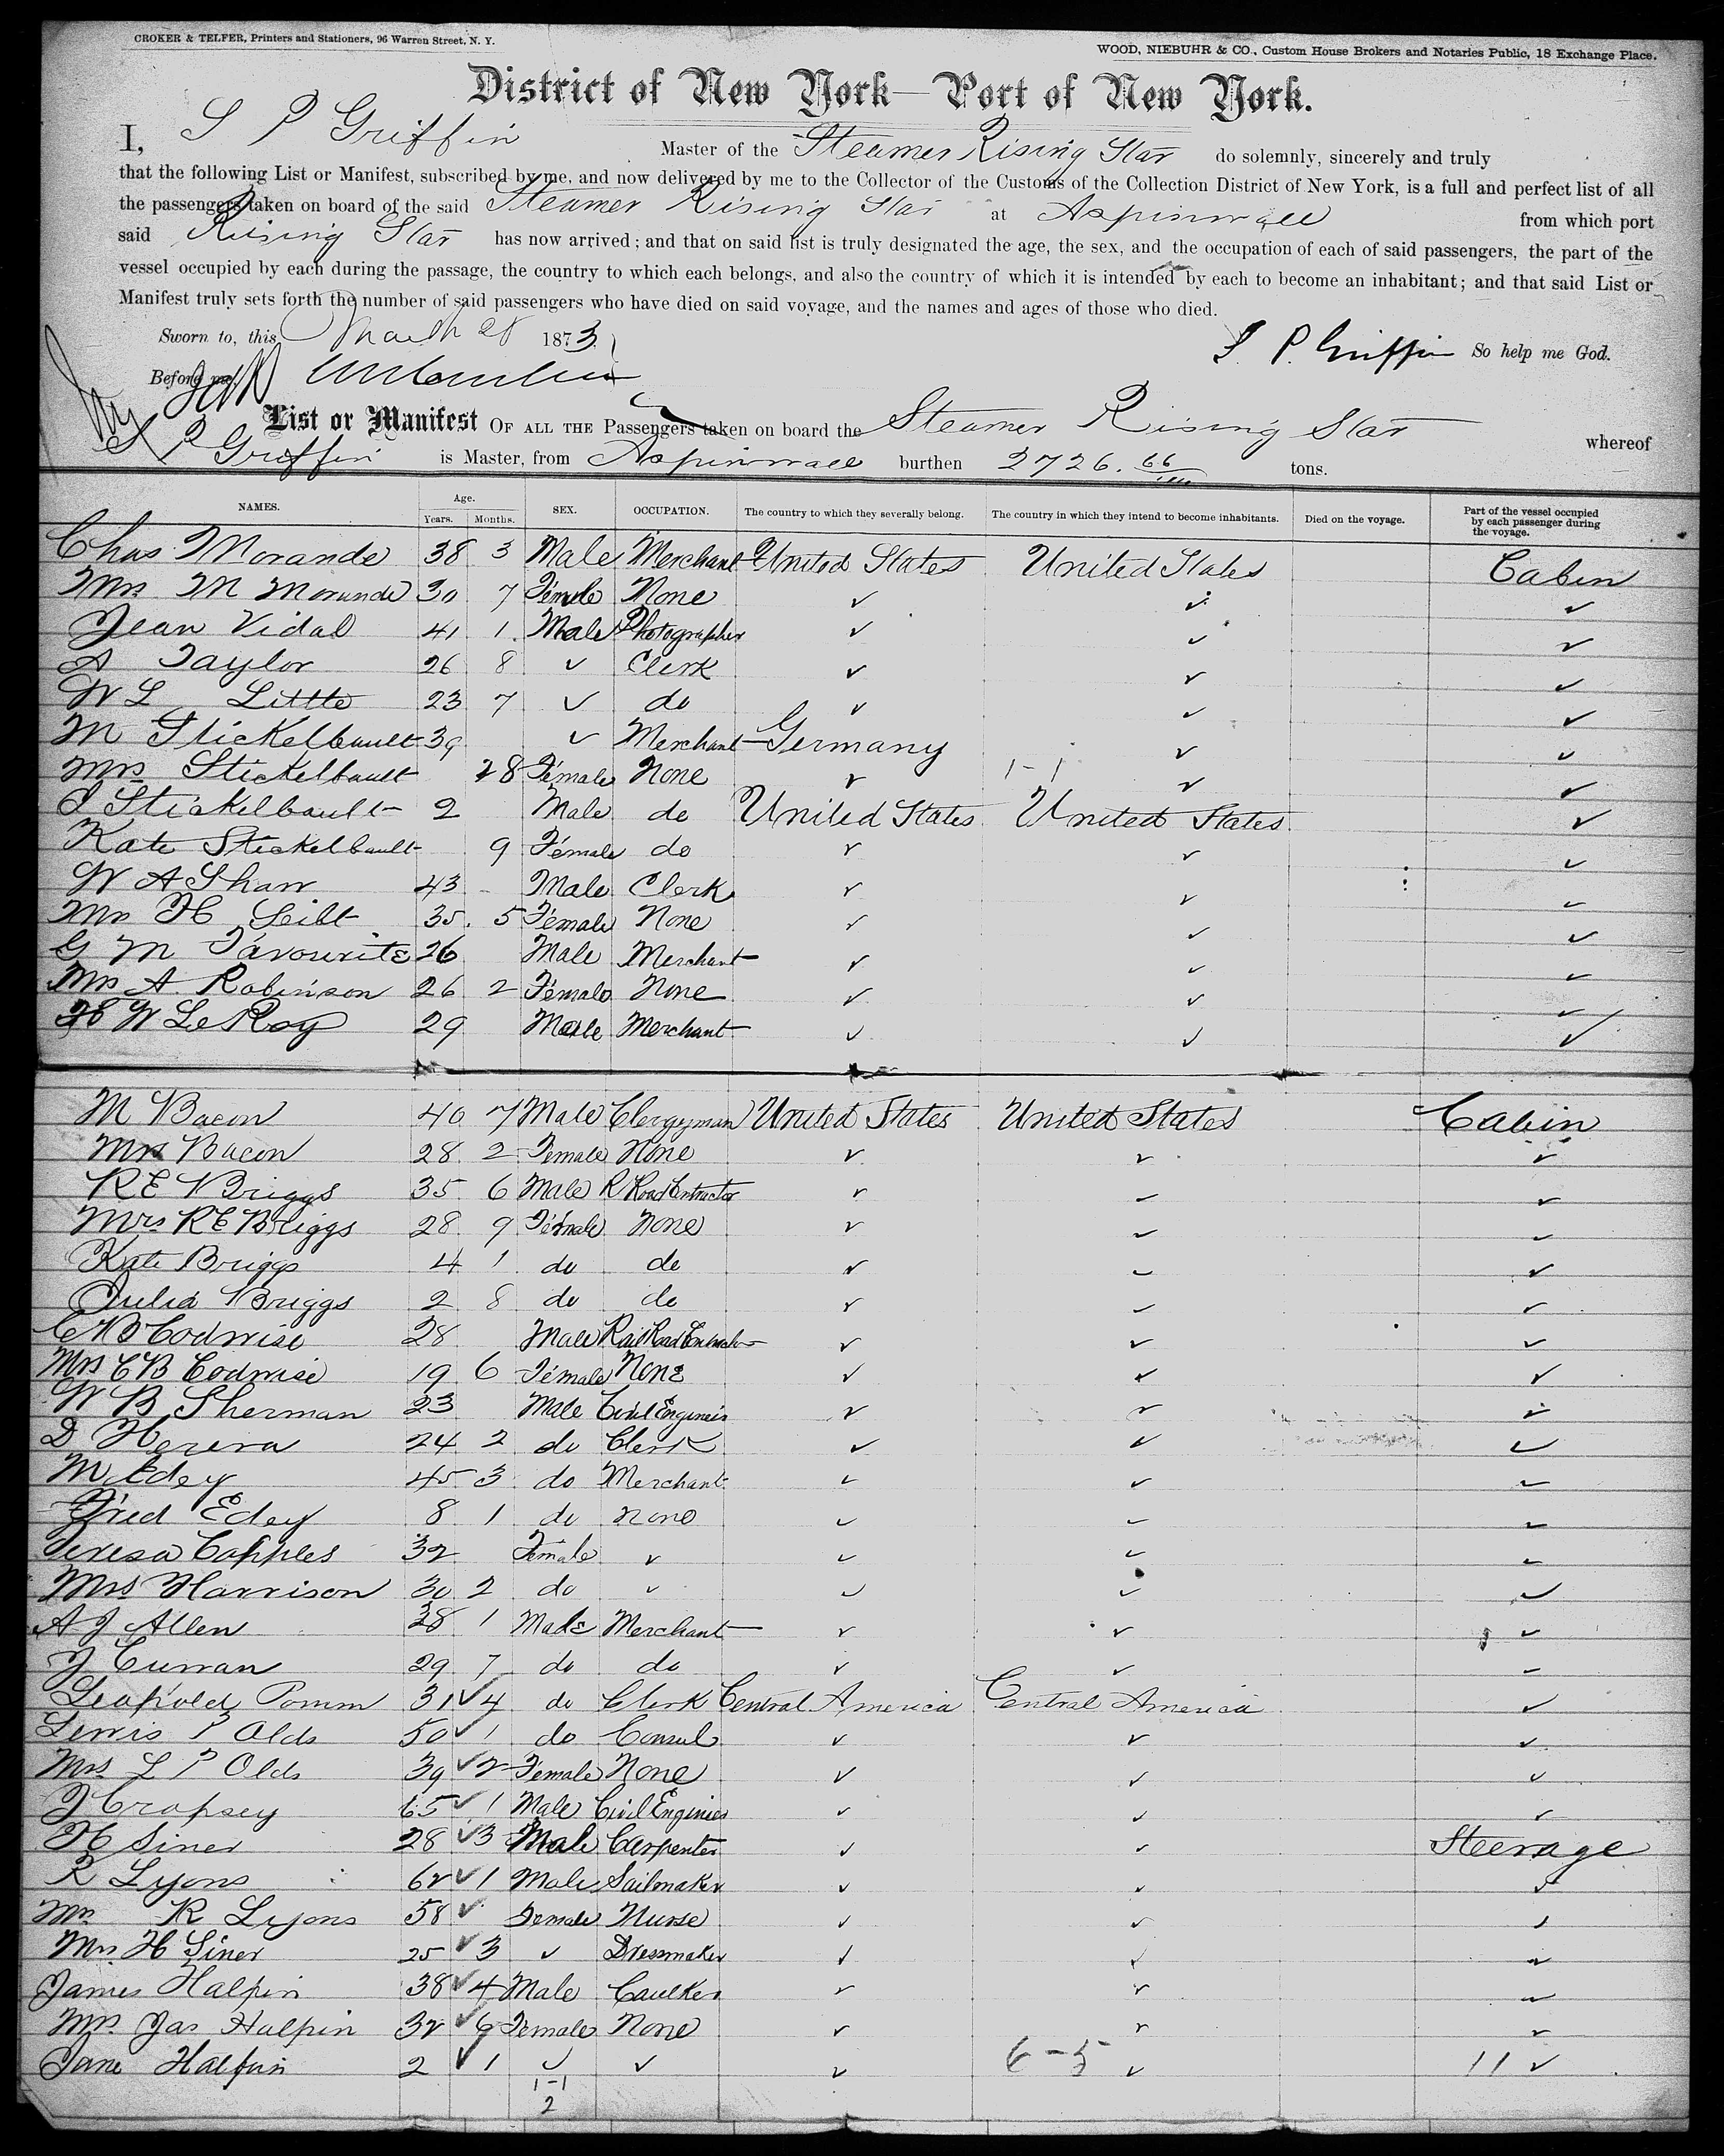 CROKER & TELFER, Printers and Stationers, 96 Warren Street, N. Y.
WOOD, NIEBUHR & CO., Custom House Brokers and Notaries Public, 18 Exchange Place.
District of New York—Port of New York.
I, S P Griffin Master of the Steamer Rising Star do solemnly, sincerely and truly
that the following List or Manifest, subscribed by me, and now delivered by me to the Collector of the Customs of the Collection District of New York, is a full and perfect list of all
the passengers taken on board of the said Steamer Rising Star at Aspinwall from which port
said Rising Star has now arrived; and that on said list is truly designated the age, the sex, and the occupation of each of said passengers, the part of the
vessel occupied by each during the passage, the country to which each belongs, and also the country of which it is intended by each to become an inhabitant; and that said List or
Manifest truly sets forth the number of said passengers who have died on said voyage, and the names and ages of those who died.
Sworn to, this March 28 1873.
S. P. Griffin So help me God.
Before me,
List or Manifest OF ALL THE Passengers taken on board the Steamer Rising Star whereof
S P Griffin is Master, from Aspinwall burthen 2726. 66 tons.
NAMES. Age. Years. Months. SEX. OCCUPATION. The country to which they severally belong. The country in which they intend to become inhabitants. Died on the voyage. Part of the vessel occupied by each passenger during the voyage.
Chas Morande 38 3 Male Merchant United States United States Cabin
Mrs M Morande 30 7 Female None ✓ ✓ ✓
Jean Vidal 41 1 Male Photographer ✓ ✓ ✓
A Taylor 26 8 ✓ Clerk ✓ ✓ ✓
W L Little 23 7 ✓ do ✓ ✓ ✓
M Stickelbault 39 ✓ Merchant Germany ✓ ✓
Mrs Stickelbault 28 Female None ✓ 1-1 ✓ ✓
S Stickelbault 2 Male do United States United States ✓
Kate Stickelbault 9 Female do ✓ ✓ ✓
W A Shaw 43 - Male Clerk ✓ ✓ ✓
Mrs H Seibt 35 5 Female None ✓ ✓ ✓
G M Favourite 26 Male Merchant ✓ ✓ ✓
Mrs A Robinson 26 2 Female None ✓ ✓ ✓
H W LeRoy 29 Male Merchant ✓ ✓ ✓
M Bacon 40 7 Male Clergyman United States United States Cabin
Mrs Bacon 28 2 Female None ✓ ✓ ✓
R E Briggs 35 6 Male R Road Contractor ✓ ✓ ✓
Mrs R E Briggs 28 9 Female None ✓ ✓ ✓
Kate Briggs 4 1 do do ✓ ✓ ✓
Julia Briggs 2 8 do do ✓ ✓ ✓
C B Codwise 28 Male Rail Road Contractor ✓ ✓ ✓
Mrs C B Codwise 19 6 Female None ✓ ✓ ✓
W B Sherman 23 Male Civil Engineer ✓ ✓ ✓
D Herera 24 2 do Clerk ✓ ✓ ✓
M Edey 45 3 do Merchant ✓ ✓ ✓
Fred Edey 8 1 do None ✓ ✓ ✓
Teresa Copples 32 Female ✓ ✓ ✓ ✓
Mrs Harrison 30 2 do ✓ ✓ ✓ ✓
A J Allen 38 1 Male Merchant ✓ ✓ ✓
J Curran 29 7 do do ✓ ✓ ✓
Leopold Pomm 31 ✓ 4 do Clerk Central America Central America ✓
Lewis P Olds 50 ✓ 1 do Consul ✓ ✓ ✓
Mrs L P Olds 39 ✓ 2 Female None ✓ ✓ ✓
J Cropsey 65 ✓ 1 Male Civil Engineer ✓ ✓ ✓
H Siner 28 ✓ 3 Male Carpenter ✓ ✓ Steerage
R Lyons 62 ✓ 1 Male Sailmaker ✓ ✓ ✓
Mrs R Lyons 58 ✓ Female Nurse ✓ ✓ ✓
Mrs H Siner 25 ✓ 3 ✓ Dressmaker ✓ ✓ ✓
James Halpin 38 ✓ 4 Male Caulker ✓ ✓ ✓
Mrs Jas Halpin 32 ✓ 6 Female None ✓ ✓ ✓
Jane Halpin 2 ✓ 1 ✓ ✓ ✓ 6-5 ✓ 11 ✓
1-1
2